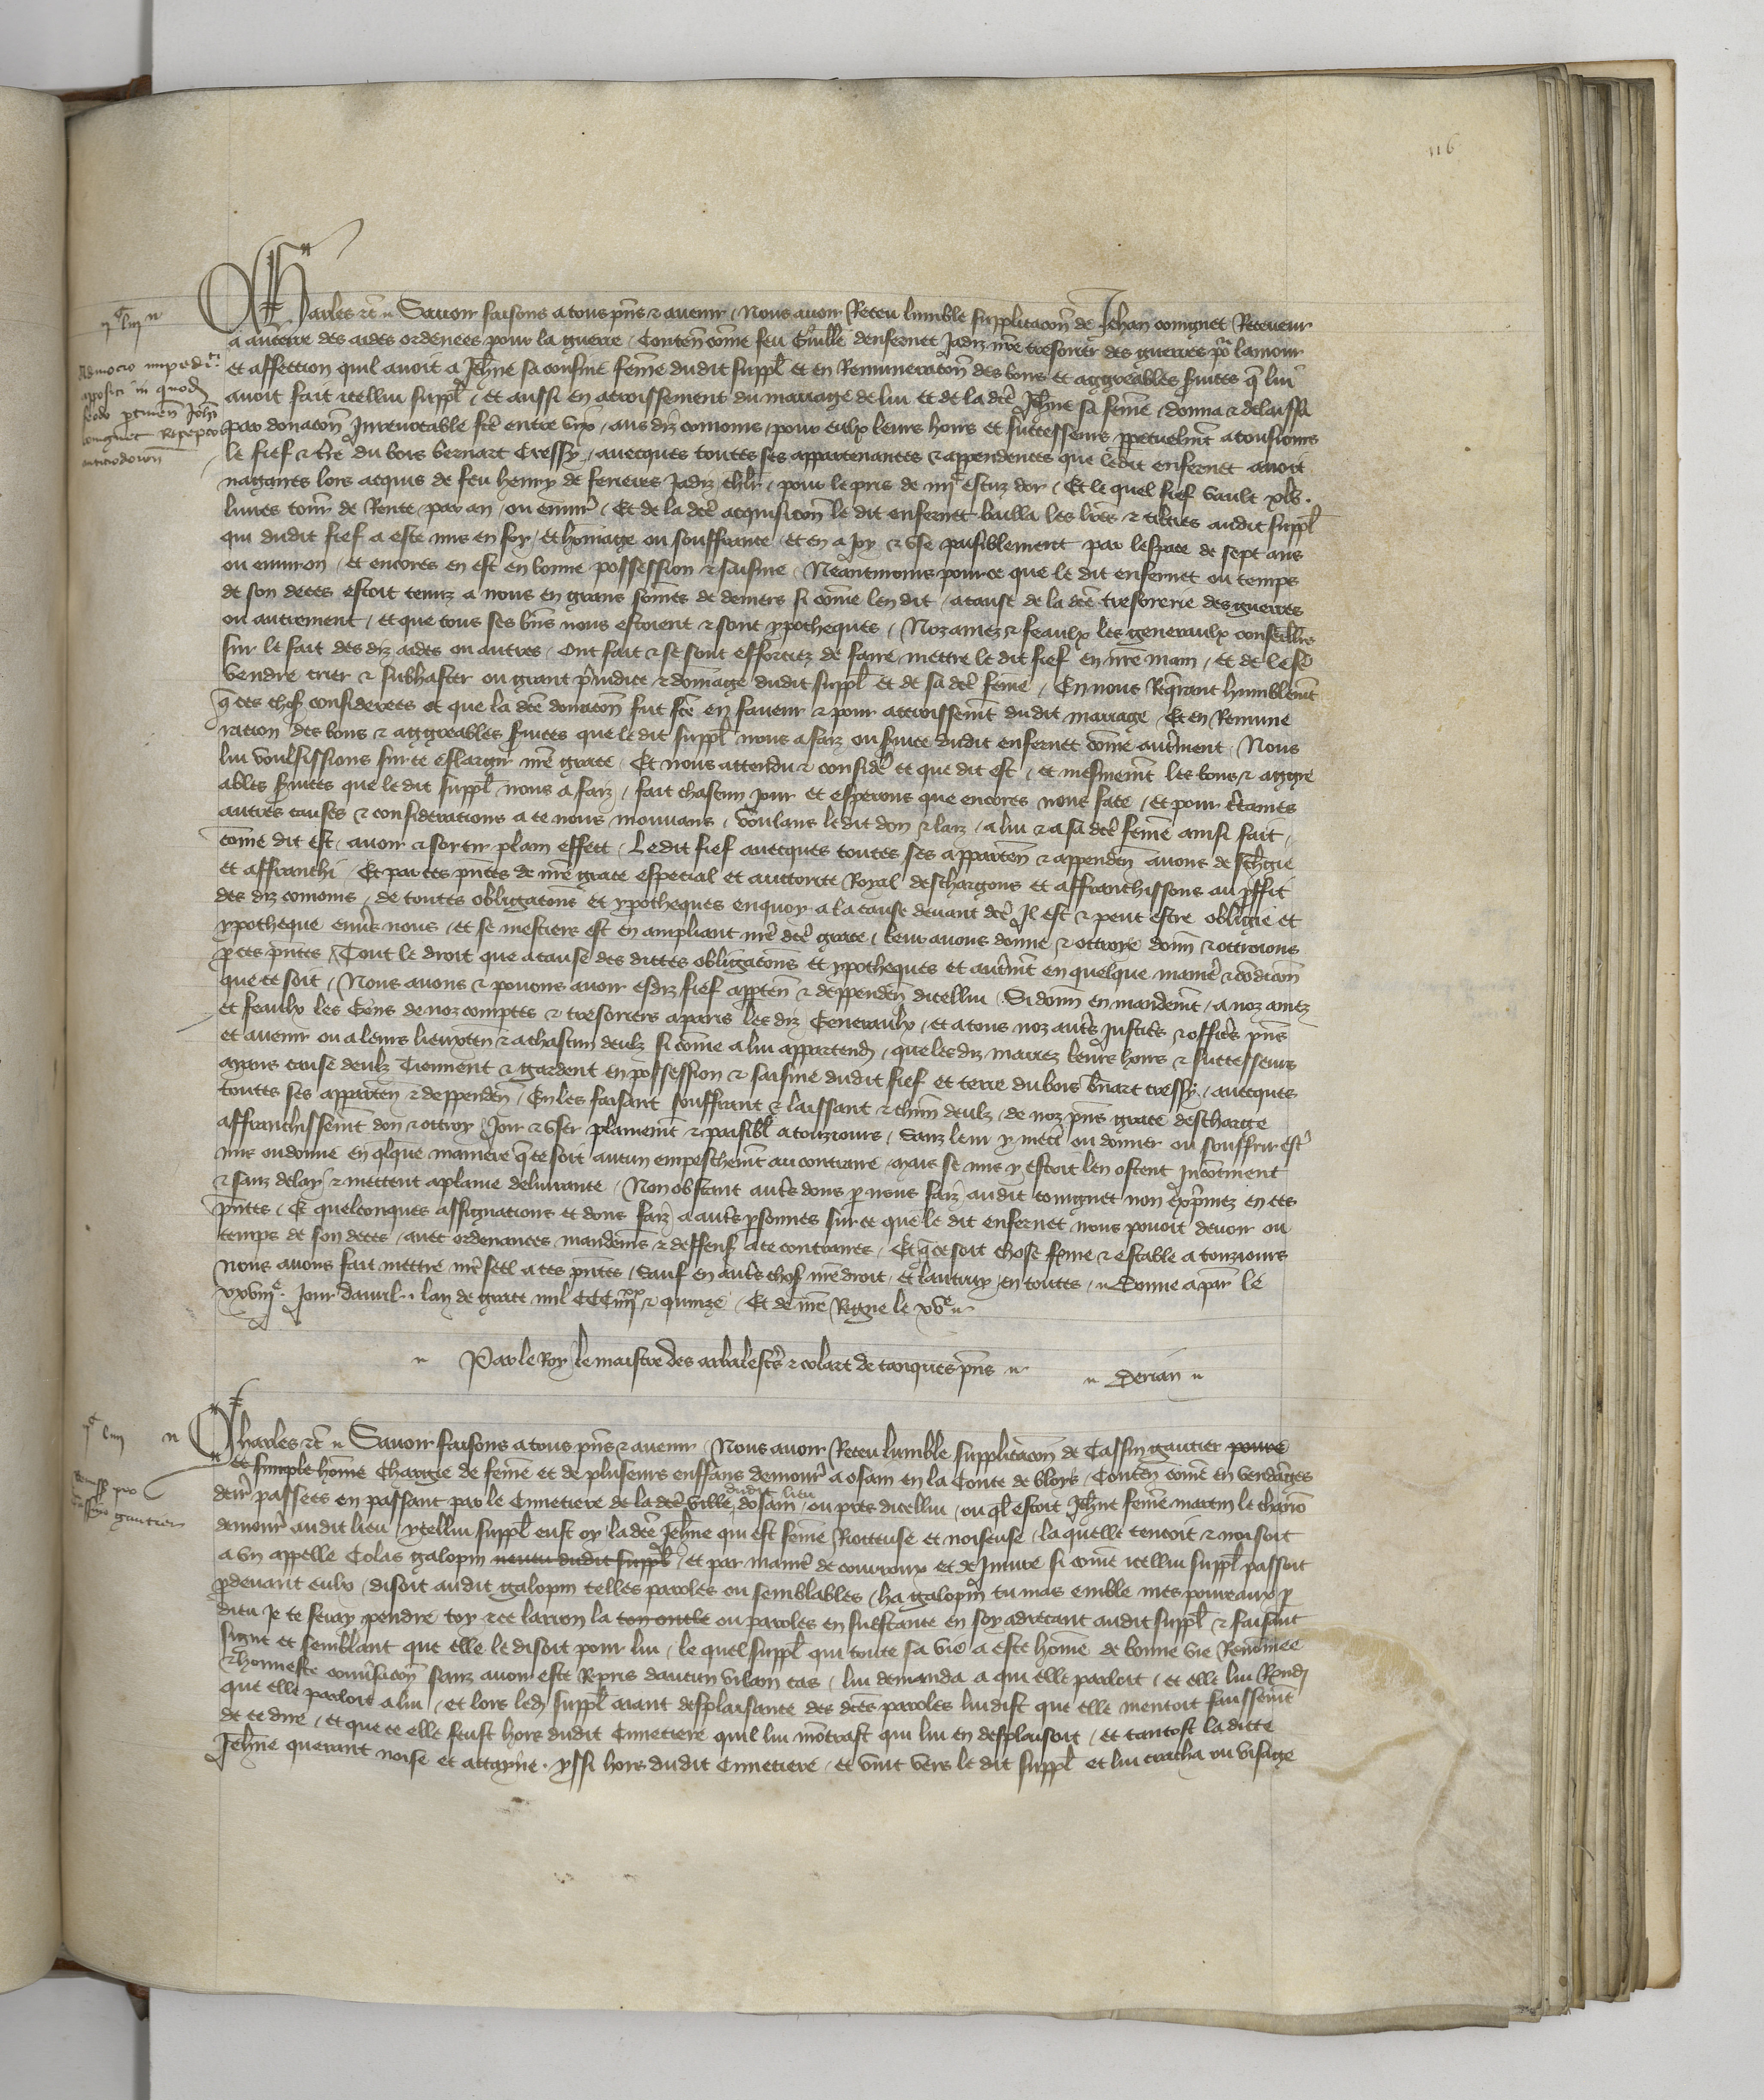 116
Charles etc̃ Savoir faisons a tous pñs & avenir Nous avoir Receu lumble supplicacõn de Jehan coingnet Receveur
a aucerre des aides ordenees pour la guerre Conteñ cõme feu Guille denfernet Jadiz nr̃e tresorier des guerres po᷑ lamour
et affection quil avoit a Jeh̃ne sa cousine fem̃e dudit suppl̃ et en Remuneracõn des bons et aggreables s̃vices q̃ lui
avoit fait icellui suppl̃ et aussi en accroissement du mariage de lui et de la dcẽ Jeh̃ne sa fem̃e donna & delaissa
par donacõn Inrevocable fcẽ entre vifz aus diz conioins pour eulx leurs hoirs et successeurs ppetuelmẽt a tousiours
le fief & tr̃e du bois bernart Cressy avecques toutes ses appartenances & appendences que ledit enfernet avoit
nagaires lors acquis de feu henry de ferieres Jadiz chl̃r pour le pris de iiijc escuz dor Et le quel fief vault xlv.
livres tourñ de Rente par an ou envir̃ Et de la dcẽ acquisicõn le dit enfernet bailla les lr̃es & tiltres audit suppl̃
qui dudit fief a este mis en foy et hom̃age ou souffrance et en a Joy & use paisiblement par lespace de sept ans
ou environ et encores en est en bonne possession & saisine Neantmoins pource que le dit enfernet ou temps
de son deces estoit tenuz a nous en grans som̃es de deniers si cõme len dit a cause de la dcẽ tresorerie des guerres
ou autrement et que tous ses biẽs nous estoient & sont ypotheques Noz amez & feaulx les generaulx conseill̃rs
sur le fait des diz aides ou autres ont fait & se sont efforciez de faire mettre le dit fief en nr̃e main et de le f̃e
vendre crier & subhaster ou grant p̃iudice & dom̃age dudit suppl̃ et de sa dcẽ fem̃e En nous Req̃rant humblemẽt
q̃ ces chos̃ considerees et que la dcẽ donacõn fut fcẽ en faveur & pour accroissemẽt dudit mariage Et en Remune
racion des bons & aggreables s̃vices que le dit suppl̃ nous a faiz ou s̃vice dudit enfernet cõme autr̃ment Nous
lui voulsissions sur ce eslargir nr̃e grace Et nous attendu & consider̃ ce que dit est et mesmemẽt les bons & aggre
ables s̃vices que le dit suppl̃ nous a faiz fait chascun jour et esperons que encores nous face et pour c̃taines
autres causes & consideracions a ce nous mouvans voulans le dit don & laiz a lui & a sa dcẽ fem̃e ainsi fait
cõme dit est avoir & sortir plain effect Ledit fief avecques toutes ses apparteñ & appendeñ avons deschargie
et affranchi Et par ces pñtes de nr̃e grace especial et auctorite Royal deschargons et affranchissons au p̃ffit
des diz conioins de toutes obligacõns et ypotheques en quoy a la cause devant dcẽ Il est & peut estre obligie et
ypotheque env̾s nous et se mestiers est en ampliant nr̃e dcẽ grace leur avons donne & ottroye donñ & ottroions
p ces pñtes Tout le droit que a cause des dittes obligacõns et ypotheques et autr̃mẽt en quelque manier̃ & cõdicõn
que ce soit Nous avons & povons avoir esdiz fief apparteñ & deppendeñ dicellui Si donñ en mandemẽt a noz amez
et feaulx les Gens de noz comptes & tresoriers a paris les diz Generaulx et a tous noz autr̃s Justicr̃s & officr̃s pñs
et avenir ou a leurs lieuxteñ & a chascun deulx si cõme a lui appartendr̃ que les diz mariez leurs hoirs & successeurs
aians cause deulz Tiennent & gardent en possession & saisine dudit fief et terre du bois b̃nart cressy avecques
toutes ses apparteñ & deppendeñ En les faisant souffrant & laissant & chũn deulz de noz pñs grace descharge
affranchissemẽt don & ottroy Joir & user plainemẽt & paisibl̃ a touziours Sanz leur y mettr̃ ou donner ou souffrir estr̃
mis ou donne en q̃lque maniere q̃ ce soit aucun empeschemẽt au contraire mais se mis y estoit len ostent Incõtinent
& sanz delay & mettent a plaine delivrance Non obstant autr̃s dons p nous faiz audit coingnet non exp̃mez en ces
pñtes Et quelconques assignacions et dons faiz a autr̃s psonnes sur ce que le dit enfernet nous povoit devoir ou
temps de son deces avec ordenances mandemẽs & deffens̃ a ce contraires Et q̃ ce soit chose ferme & estable a touziours
nous avons fait mettre nr̃e seel a ces pñtes Sauf en autr̃s chos̃ nr̃e droit et lautruy en toutes Donne a par̃ le
xxviije Jour davril lan de grace mil CCC iiijxx & quinze Et de nr̃e Regne le xve
Par le Roy le maistre des arbalestr̃s & colart de tanques pñs
Derian
Charles etc̃ Savoir faisons a tous pñs & avenir Nous avoir Receu lumble supplicacõn de Cassin gautier povre
et simple hom̃e Chargie de fem̃e et de pluseurs enffans demour̃ a osain en la Conte de bloys Conteñ cõme en vendanges
derr̃ passees en passant par le Cimetiere de la dcẽ ville dudit lieu dosain ou pres dicellui ou q̃l estoit Jeh̃ne fem̃e martin le charrõ
demour̃ audit lieu ycellui suppl̃ eust oy la dcẽ Jeh̃ne qui est fem̃e Rioteuse et noiseuse la quelle tencoit & noisoit
a un appelle Colas galopin neveu dudit suppl̃ et par manier̃ de courroux et de Iniure si cõme icellui suppl̃ passoit
p devant eulx disoit audit galopin telles paroles ou semblables ha galopin tu mas emble mes poureaux p
dieu Je te feray pendre toy & ce larron la ton oncle ou paroles en substance en soy adrecant audit suppl̃ & faisant
signe et semblant que elle le disoit pour lui le quel suppl̃ qui toute sa vie a este hom̃e de bonne vie Renom̃ee
& honneste conv̾sacõn sanz avoir este Repris daucun vilain cas lui demanda a qui elle parloit et elle lui Rñdi
que elle parloit a lui et lors led̃ suppl̃ aiant desplaisance des dcẽs paroles lui dist que elle mentoit faussemẽt
de ce dire et que ce elle feust hors dudit Cimetiere quil lui mõtrast qui lui en desplaisoit et tantost la ditte
Jeh̃ne querant noise et attayne yssi hors dudit Cimetiere et vint vers le dit suppl̃ et lui cracha ou visage